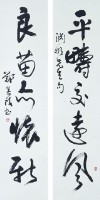 平疇交遠風
淵明先生句
良苗亦懷新